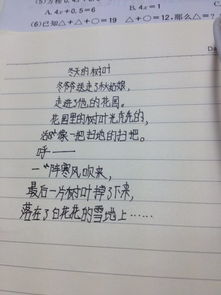 A. 4x+0.5=6 B. 4x=1
(6)已知△+△+○=19 △+○=12,那么△=?
冬天的树叶
冬爷爷送走了秋姑娘,
走进了他的花园。
花园里的树叶光秃秃的,
像一把扫地的扫把。
呼——
一阵寒风吹来,
最后一片树叶掉了下来,
落在了白花花的雪地上……